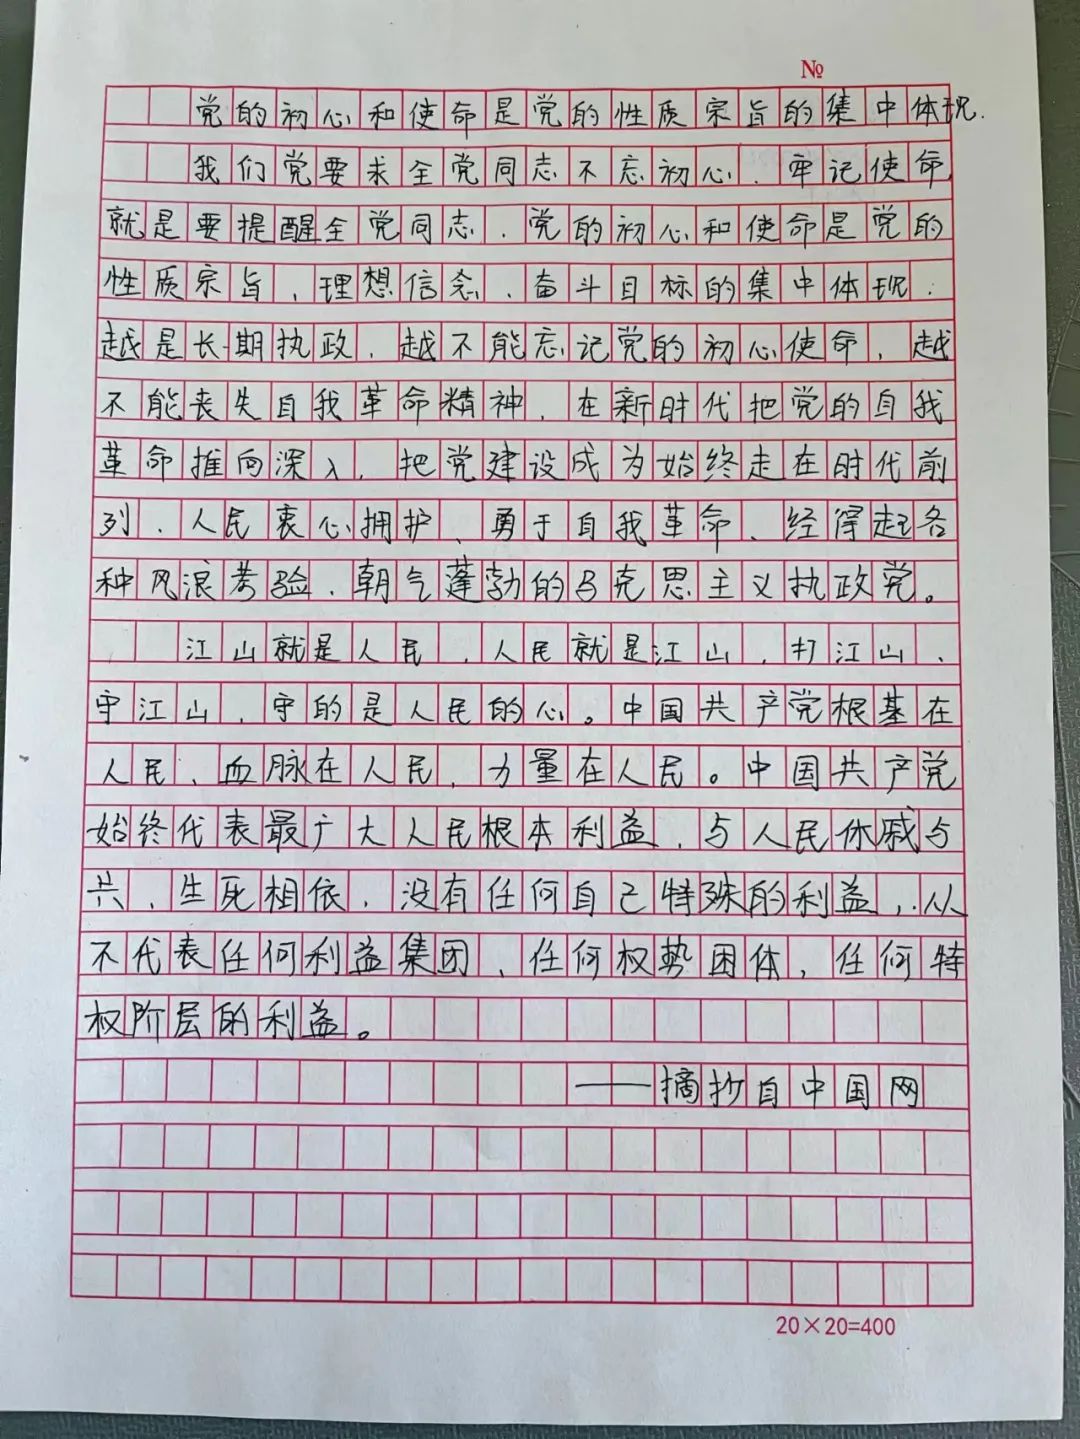 №
党的初心和使命是党的性质宗旨的集中体现.
我们党要求全党同志不忘初心、牢记使命
就是要提醒全党同志、党的初心和使命是党的
性质宗旨、理想信念、奋斗目标的集中体现.
越是长期执政,越不能忘记党的初心使命,越
不能丧失自我革命精神,在新时代把党的自我
革命推向深入,把党建设成为始终走在时代前
列、人民衷心拥护、勇于自我革命、经得起各
种风浪考验、朝气蓬勃的马克思主义执政党。
江山就是人民,人民就是江山,打江山、
守江山,守的是人民的心。中国共产党根基在
人民、血脉在人民,力量在人民。中国共产党
始终代表最广大人民根本利益,与人民休戚与
共、生死相依,没有任何自己特殊的利益,从
不代表任何利益集团、任何权势团体,任何特
权阶层的利益。
——摘抄自中国网
20×20=400